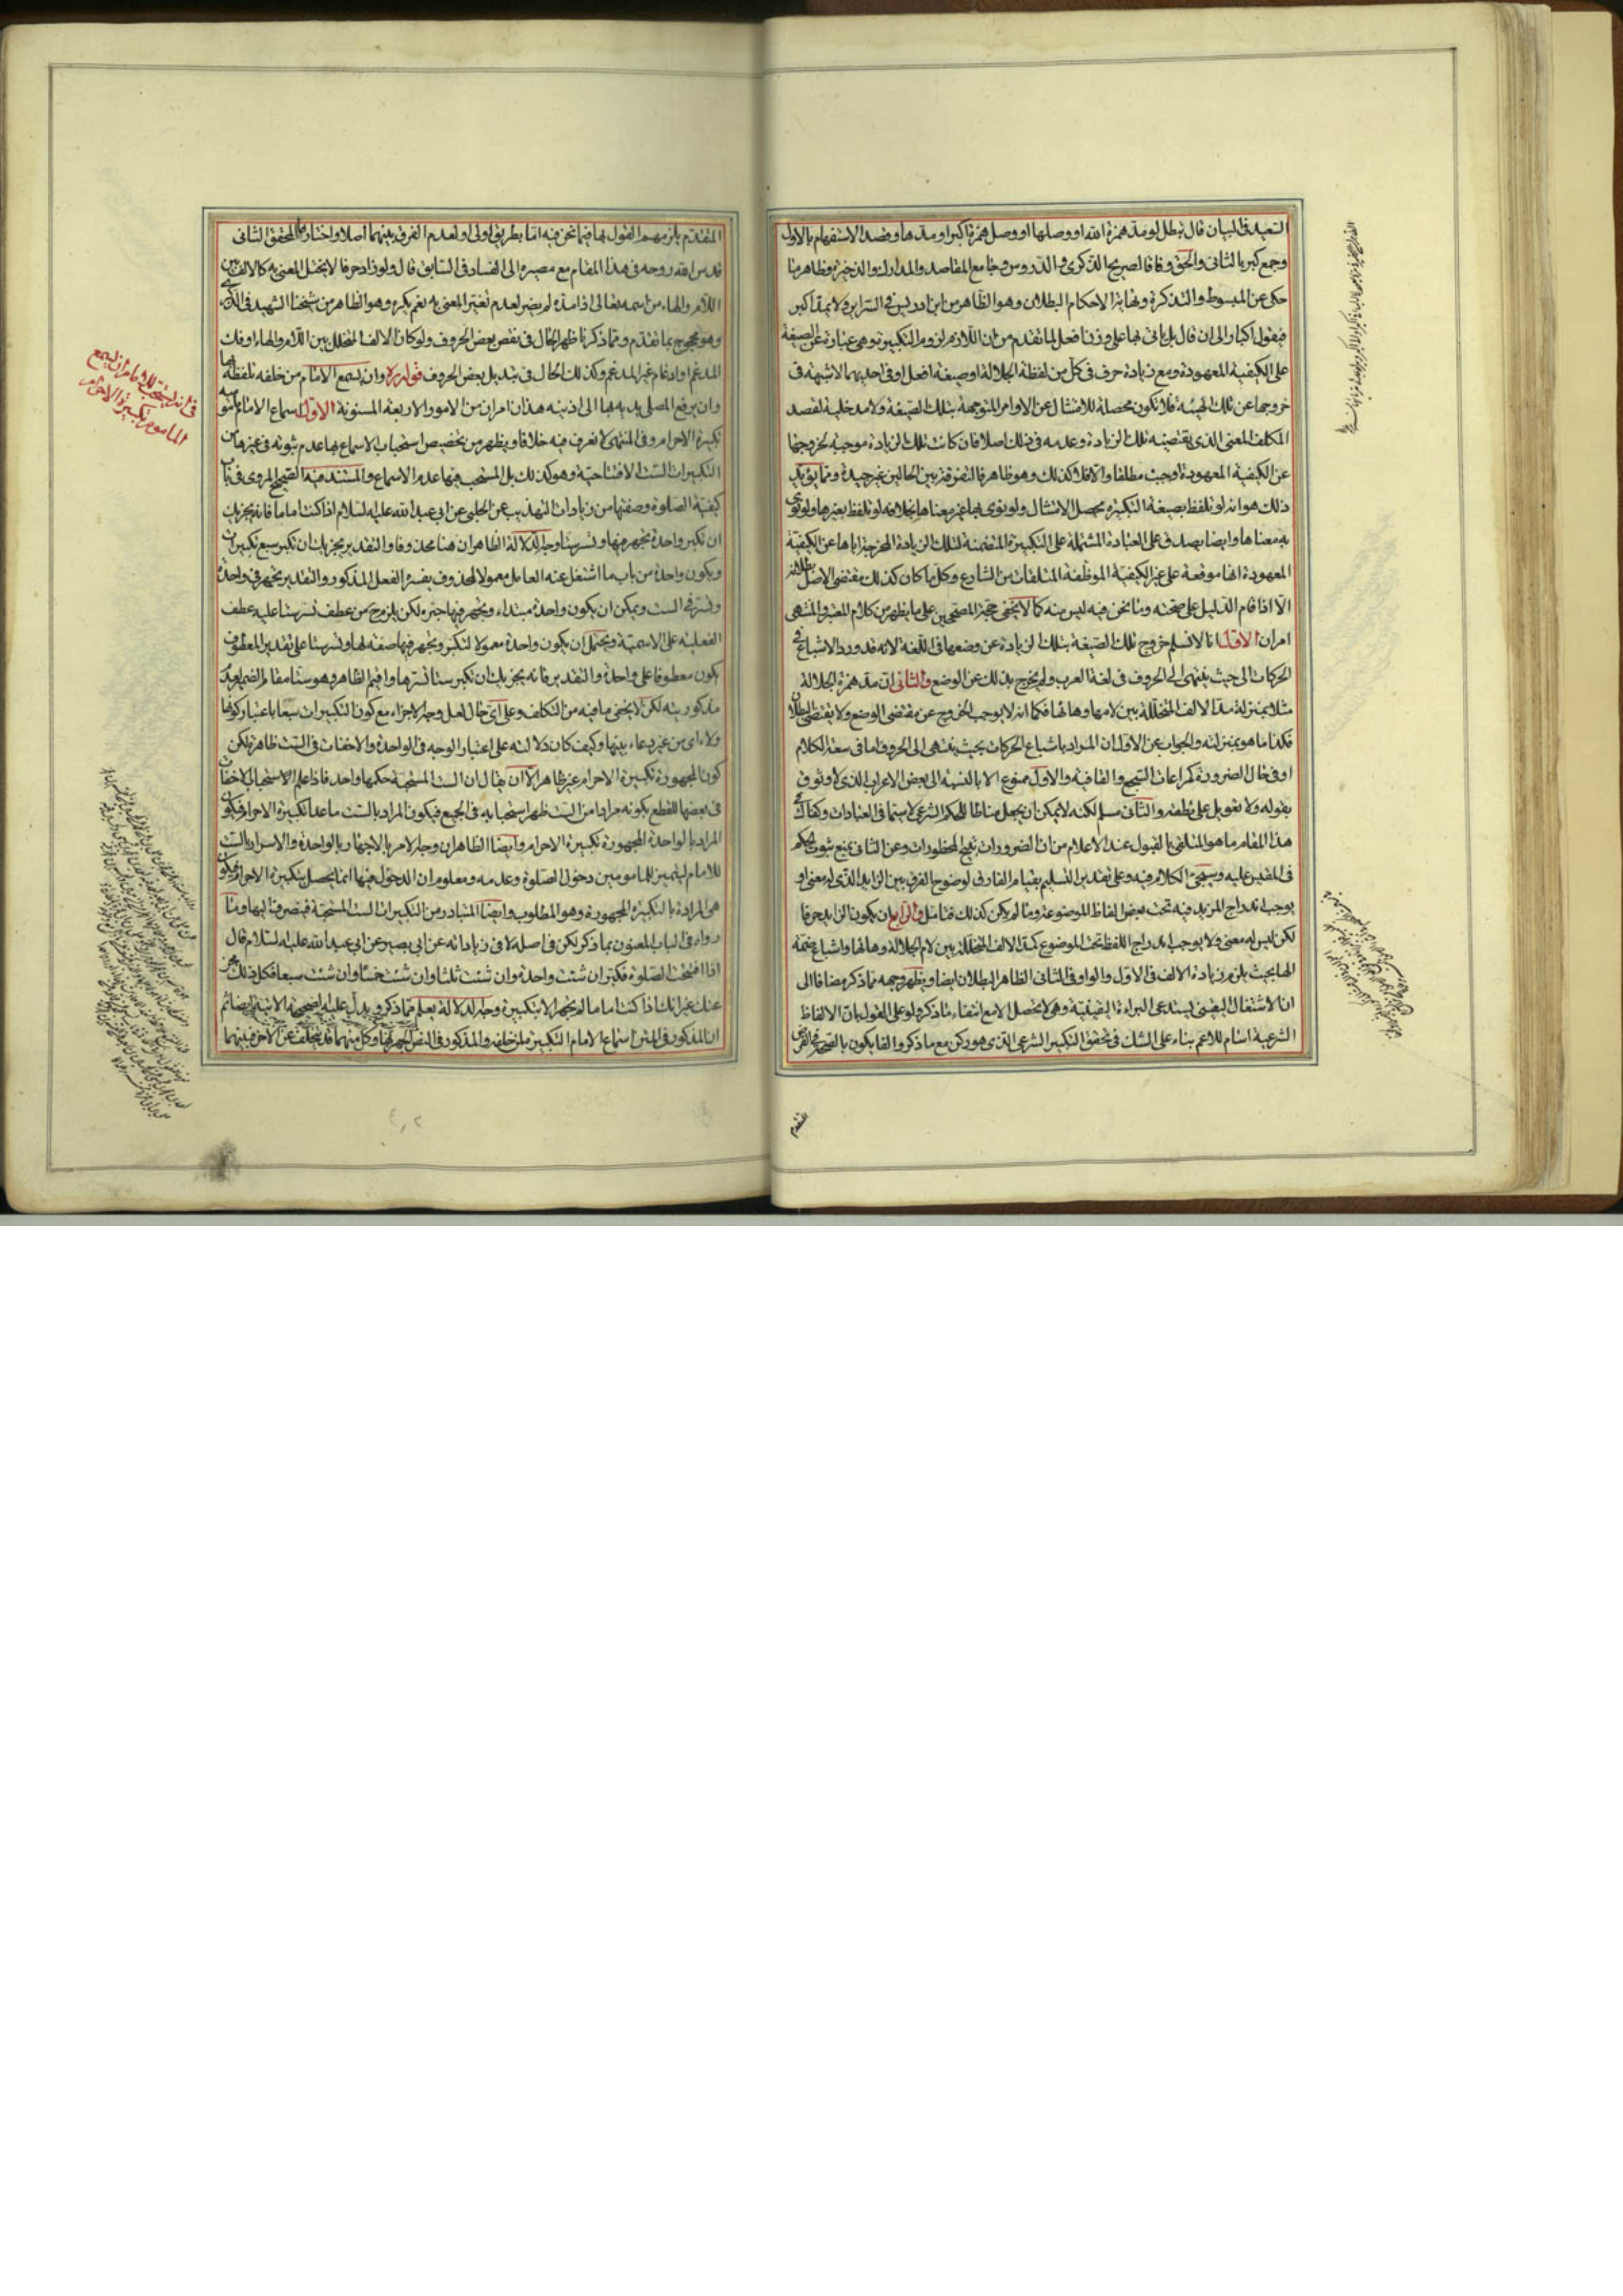 السعيد في البيان قال يبطل لو مد همزة الله او وصلها او وصل همزة اكبر او مدها وقصد الاستفهام بالاول
وجمع كبر بالثاني والحق وفاقا لصريح الذكرى والدروس وجامع المقاصد والمدارك والذخيرة وظاهر ما
حكى عن المبسوط والتذكرة ونهاية الاحكام البطلان وهو الظاهر من ابن ادريس في السرائر ولا يمد اكبر
فيقول اكبار الى ان قال بل ياتي بها على وزن افعل لما تقدم من ان اللازم لزوم التكبيرة وهي عبارة عن الصيغة
على الكيفية المعهودة ومع زيادة حرف في كل من لفظة الجلالة او صيغة افعل او في احديهما لا شبهة في
خروجها عن تلك الهيئة فلا تكون محصلة للامتثال عن الاوامر المتوجهة بتلك الصيغة ولا مدخلية لقصد
المكلف المعنى الذي يقتضيه تلك الزيادة وعدمه في ذلك اصلا فان كانت تلك الزيادة موجبة لخروجها
عن الكيفية المعهودة اوجبت مطلقا والا فلا كذلك وهو ظاهر فالتفرقة بين الحالين غير جيدة ومما يؤيد
ذلك هو انه لو تلفظ بصيغة التكبيرة يحصل الامتثال ولو نوى بها غير معناها بخلافه لو تلفظ بغيرها ولو نوى
به معناها وايضا يصدق على العبادة المشتملة على التكبيرة المتضمنة لتلك الزيادة المخرجة اياها عن الكيفية
المعهودة انها موقعة على غير الكيفية الموظفة المتلقات من الشارع وكل ما كان كذلك مقتضى الاصل بطلانه
الا اذا قام الدليل على صحته وما نحن فيه ليس منه كما لا يخفى حجة المصححين على ما يظهر من كلام المعتبر والمنتهى
امران الاول انا لا نسلم خروج تلك الصيغة بتلك الزيادة عن وضعها في اللغة لانه قد ورد الاشباع في
الحركات الى حيث ينتهى الى الحروف في لغة العرب ولم يخرج بذلك عن الوضع والثاني ان مد همزة الجلالة
مثلا بمنزلة مد الالف المتخللة بين لامها وهائها فكما انه لا يوجب الخروج عن مقتضى الوضع ولا يقتضى البطلان
فكذا ما هو بمنزلته والجواب عن الاول ان المراد باشباع الحركات بحيث ينتهى الى الحروف اما في سعة الكلام
او في حال الضرورة كمراعات السجع والقافية والاول ممنوع الا بالنسبة الى بعض الاعراب الذي لا وثوق
بقوله ولا تعويل على نطقه والثاني مسلم لكنه لا يمكن ان يجعل مناطا للحكم الشرعي لا سيما في العبادات وكفاك في
هذا المقام ما هو المتلقى بالقبول عند الاعلام من ان الضرورات تبيح المحظورات وعن الثاني بمنع ثبوت الحكم
في المقيس عليه وسيجئ الكلام فيه وعلى تقدير التسليم بقيام الفارق لوضوح الفرق بين الزايد الذي له معنى او
يوجب اندراج المزيد فيه تحت بعض الفاظ الموضوعة وما لم يكن كذلك فتامل والرابع ان يكون الزايد حرفا
لكن ليس له معنى ولا يوجب اندراج اللفظ تحت الموضوع كمد الالف المتخللة بين لام الجلالة وهائها واشباع ضمة
الهاء بحيث يلزم زيادة الالف في الاول والواو في الثاني الظاهر البطلان ايضا ويظهر وجهه مما ذكر مضافا الى
ان الاشتغال اليقيني يستدعى البراءة اليقينية وهي لا تحصل الا مع انتفاء ما ذكر ولو على القول بان الالفاظ
الشرعية اسام للاعم بناء على الشك في تحقق التكبير الشرعي الذي هو ركن مع ما ذكر والقايلون بالصحة في الفرض
المتقدم يلزمهم القول بها فيما نحن فيه اما بطريق اولى او لعدم الفرق بينهما اصلا واختاره المحقق الثاني
قدس الله روحه في هذا المقام مع مصيره الى الفساد في السابق قال ولو زاد حرفا لا يختل المعنى به كالالف بين
اللام والهاء من اسمه تعالى اذا مده لم يضر لعدم تغير المعنى به نعم يكره وهو الظاهر من شيخنا الشهيد في الذكرى
وهو محجوج بما تقدم ومما ذكرنا ظهر الحال في نقص بعض الحروف ولو كان الالف المتخلل بين اللام والهاء او فك
المدغم او ادغام غير المدغم وكذلك الحال في تبديل بعض الحروف قوله ره وان يسمع الامام من خلفه تلفظه بها
وان يرفع المصلى يديه بها الى اذنيه هذان امران من الامور الاربعة المسنونة الاول اسماع الامام مأموميه
تكبيرة الاحرام وفي المنتهى لا نعرف فيه خلافا ويظهر من تخصيص استحباب الاسماع بها عدم ثبوته في غيرها من
التكبيرات الست الافتتاحية وهو كذلك بل المستحب فيها عدم الاسماع والمستند فيه الصحيح المروى في باب
كيفية الصلوة وصفتها من زيادات التهذيب عن الحلبي عن ابي عبد الله عليه السلام اذا كنت اماما فانه يجزيك
ان تكبر واحدة تجهر فيها وتسر ستا وجه الدلالة الظاهر ان هنا محذوفا والتقدير يجزيك ان تكبر سبع تكبيرات
ويكون واحدة من باب ما اشتغل عنه العامل معمولا لمحذوف يفسره الفعل المذكور والتقدير تجهر في واحدة
وتسر في الست ويمكن ان يكون واحدة مبتداء وتجهر فيها خبره لكن يلزم ح من عطف تسر ستا عليه عطف
الفعلية على الاسمية ويحتمل ان يكون واحدة معمولا لتكبر وتجهر فيها صفة لها وتسر ستا على تقدير المعطوف
يكون معطوفا على واحدة والتقدير فانه يجزيك ان تكبر ستا تسرها واقيم الظاهر وهو ستا مقام الضمير لعدم
مذكوريته لكن لا يخفى ما فيه من التكلف وعلى اي حال لعل وجه الاجزاء مع كون التكبيرات سبعا باعتبار كونها
ولاء اى من غير دعاء بينها وكيف كان دلالته على اعتبار الوجه في الواحدة والاخفات في الست ظاهرة لكن
كون المجهورة تكبيرة الاحرام غير ظاهر الا ان يقال ان الست المستحبة حكمها واحد فاذا علم الاستحباب الاخفات
في بعضها للقطع بكونه مرادا من الست ظهر استحبابه في الجميع فيكون المراد بالست ما عدا تكبيرة الاحرام فيكون
المراد بالواحدة المجهورة تكبيرة الاحرام وايضا الظاهر ان وجه الامر بالاجهار بالواحدة والاسرار بالست
للامام ليتميز للمامومين دخول الصلوة وعدمه ومعلوم ان الدخول فيها انما يحصل بتكبيرة الاحرام فيكون
هي المرادة بالتكبيرة المجهورة وهو المطلوب وايضا المتبادر من التكبيرات الست المستحبة فيصرف اليها وما
رواه في الباب المعنون بما ذكر لكن في اصله لا في زياداته عن ابي بصير عن ابي عبد الله عليه السلام قال
اذا افتتحت الصلوة فكبر ان شئت واحدة وان شئت ثلثا وان شئت خمسا وان شئت سبعا فكل ذلك مجز
عنك غير انك اذا كنت اماما لم تجهر الا بتكبيرة وجه الدلالة يعلم مما ذكر ويدل عليه الصحيحة الاتية ايضا ثم
ان المذكور في المتن اسماع الامام التكبيرة من خلفه والمذكور في النص الجهر بها وكل منهما قد يتخلف عن الاخر فبينهما
في انه يستحب للامام ان يسمع
المأموم تكبيرة الاحرام
المتقدم